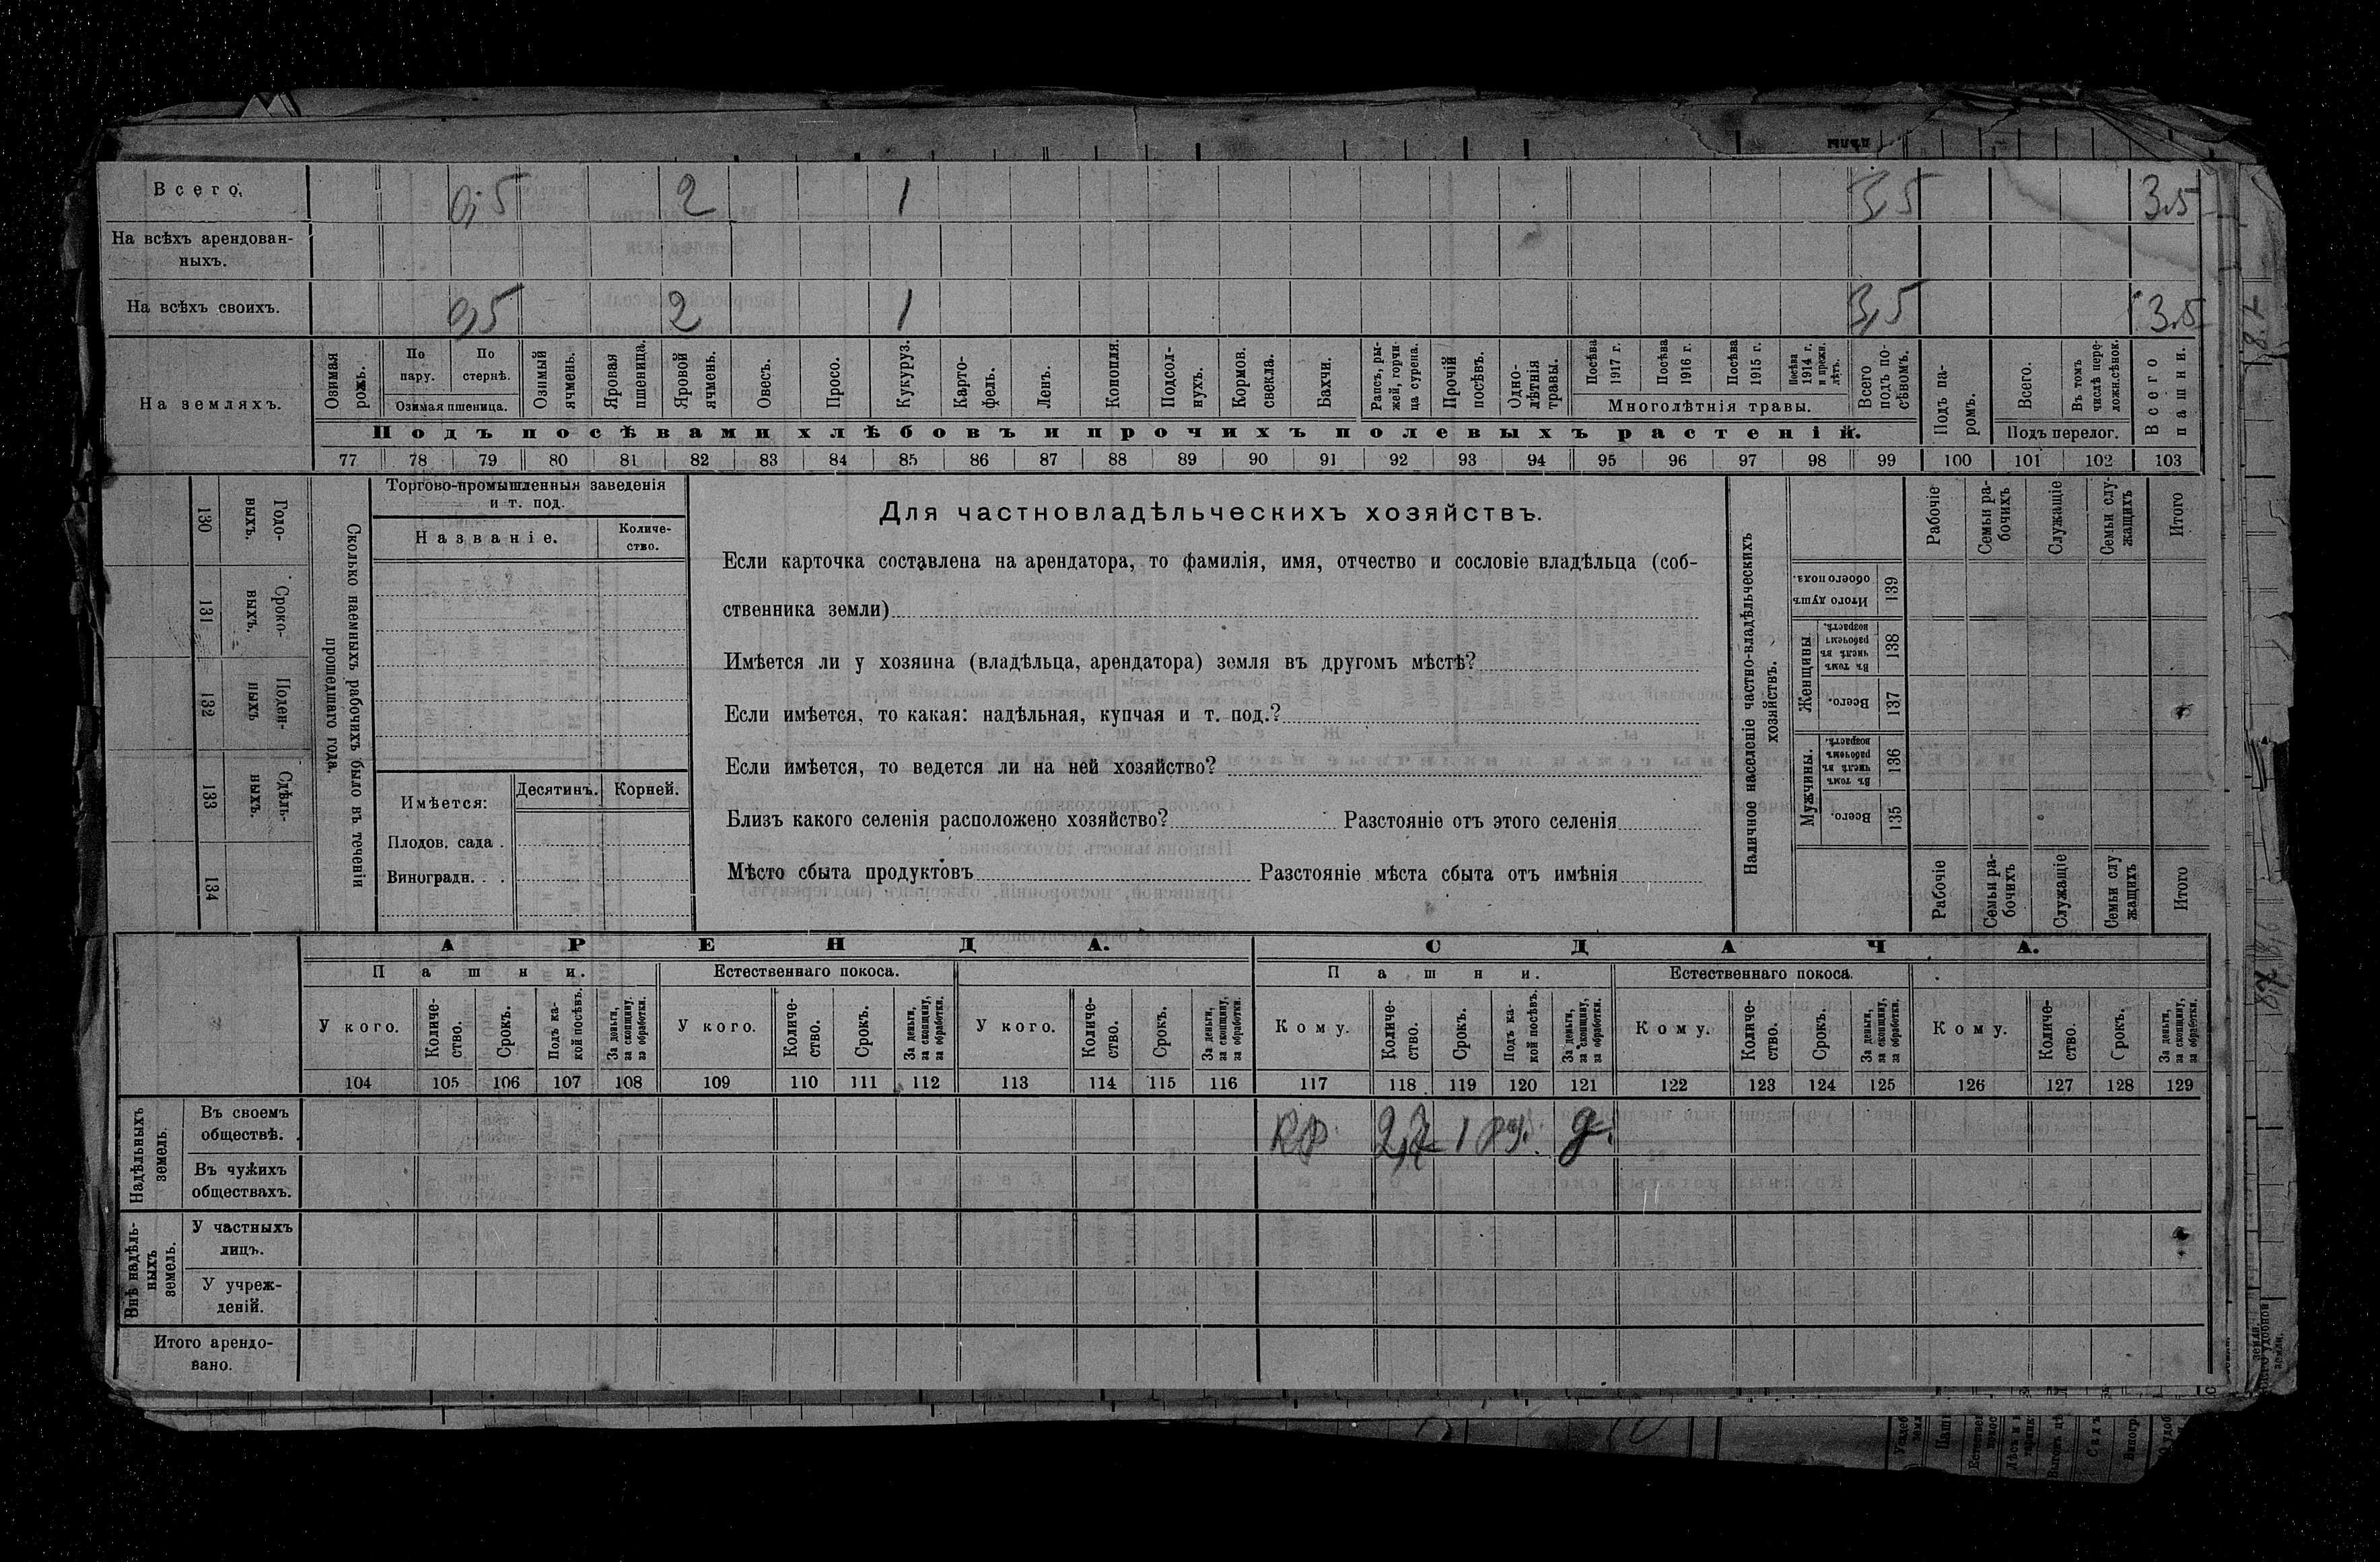 Всего.
0,5 2 1 3,5 3.5
На всѣхъ арендован-
ныхъ.
На всѣхъ своихъ.
0,5 2 1 3,5 3.5
На земляхъ.
Озимая рожь.
По пару.
По стернѣ.
Озимая пшеница.
Озимый ячмень.
Яровая пшеница.
Яровой ячмень.
Овесъ.
Просо.
Кукуруз.
Карто-
фель.
Ленъ.
Конопля.
Подсол-
нухъ.
Кормов. свекла.
Бахчи.
Рапсъ, ры-
жей, горчи-
ца сурепа.
Прочій посѣвъ.
Одно-
лѣтнія травы.
Посѣва 1917 г.
Посѣва 1916 г.
Посѣва 1915 г.
Посѣва 1914 г. и прежн. лѣтъ.
Многолѣтнія травы.
Всего подъ по-
сѣвомъ.
Подъ па-
ромъ.
Всего.
Въ томъ числѣ пере-
ложн.сѣнок.
Подъ перелог.
Всего пашни.
Подъ посѣвами хлѣбовъ и прочихъ полевыхъ растеній.
77 78 79 80 81 82 83 84 85 86 87 88 89 90 91 92 93 94 95 96 97 98 99 100 101 102 103
Годо-
выхъ.
130
Сроко-
выхъ.
131
Поден-
ныхъ
132
Сдѣль-
ныхъ.
133
134
Сколько наемныхъ рабочихъ было въ теченіи
прошедшаго года.
Торгово-промышленныя заведенія
и т. под.
Названіе.
Количе-
ство.
Имѣется:
Десятинъ.
Корней.
Плодов. сада .
Виноградн. . .
Для частновладѣльческихъ хозяйствъ.
Если карточка составлена на арендатора, то фамилія, имя, отчество и сословіе владѣльца (соб-
ственника земли)
Имѣется ли у хозяина (владѣльца, арендатора) земля въ другомъ мѣстѣ?
Если имѣется, то какая: надѣльная, купчая и т. под.?
Если имѣется, то ведется ли на ней хозяйство?
Близъ какого селенія расположено хозяйство? Разстояніе отъ этого селенія
Мѣсто сбыта продуктовъ Разстояніе мѣста сбыта отъ имѣнія
Наличное населеніе частно-владѣльческихъ
хозяйствъ.
Рабочіе
Семьи ра-
бочихъ
Служащіе
Семьи слу-
жащихъ
Итого
Итого душъ
обоего пола.
139
Женщины
Въ томъ числѣ въ рабочемъ возрастѣ.
138
Всего.
137
Мужчины.
Въ томъ числѣ въ рабочемъ возрастѣ.
136
Всего.
135
Рабочіе
Семьи ра-
бочихъ
Служащіе
Семьи слу-
жащихъ
Итого
АРЕНДА.
СДАЧА.
Пашни.
Естественнаго покоса.
Пашни.
Естественнаго покоса.
У кого.
Количе-
ство.
Срокъ.
Подъ ка-
кой посѣвъ.
За деньги,
за скопщину,
за обработки.
У кого.
Количе-
ство.
Срокъ.
За деньги,
за скопщину,
за обработки.
У кого.
Количе-
ство.
Срокъ.
За деньги,
за скопщину,
за обработки.
Кому.
Количе-
ство.
Срокъ.
Подъ ка-
кой посѣвъ.
За деньги,
за скопщину,
за обработки.
Кому.
Количе-
ство.
Срокъ.
За деньги,
за скопщину,
за обработки.
Кому.
Количе-
ство.
Срокъ.
За деньги,
за скопщину,
за обработки.
104 105 106 107 108 109 110 111 112 113 114 115 116 117 118 119 120 121 122 123 124 125 126 127 128 129
Надѣльныхъ
земель.
Въ своемъ
обществѣ.
Въ чужихъ
обществахъ.
Внѣ надѣль-
ныхъ
земель.
У частныхъ
лицъ.
У учреж-
деній.
Итого арендо-
вано.